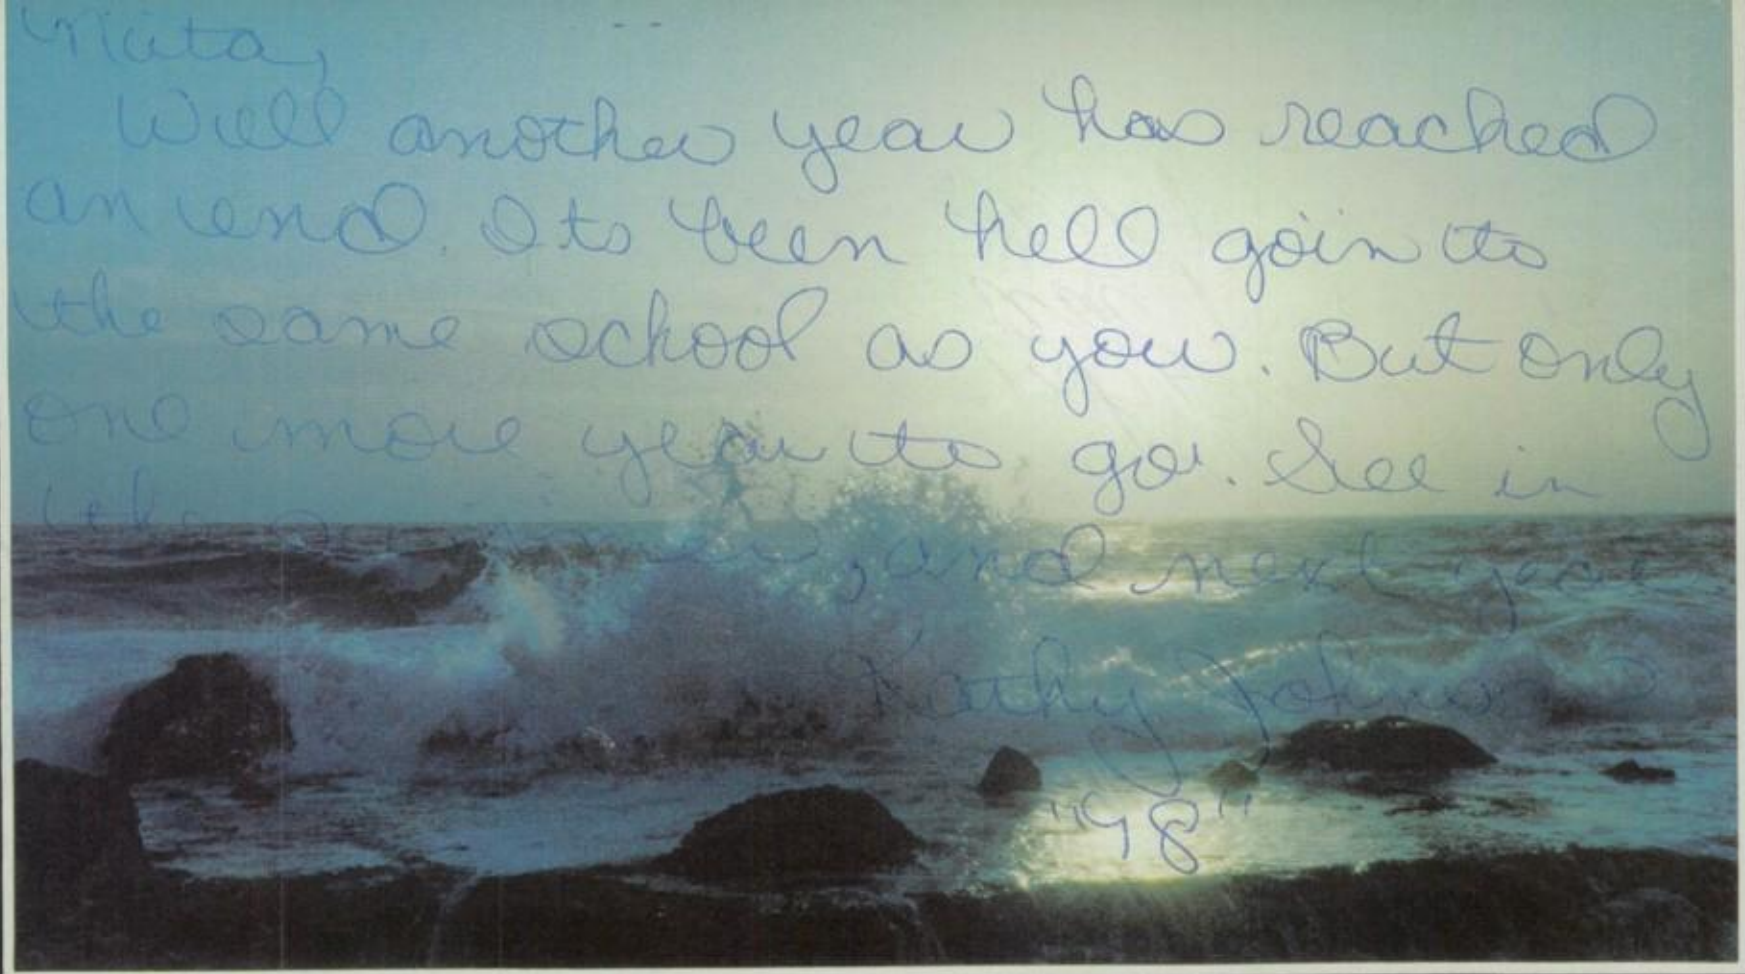 Well another year has reached
an end. Its been hell goin to
the same school as you. But only
one more year to go. See in
the summer, and next year
Kathy Johnson
"98"